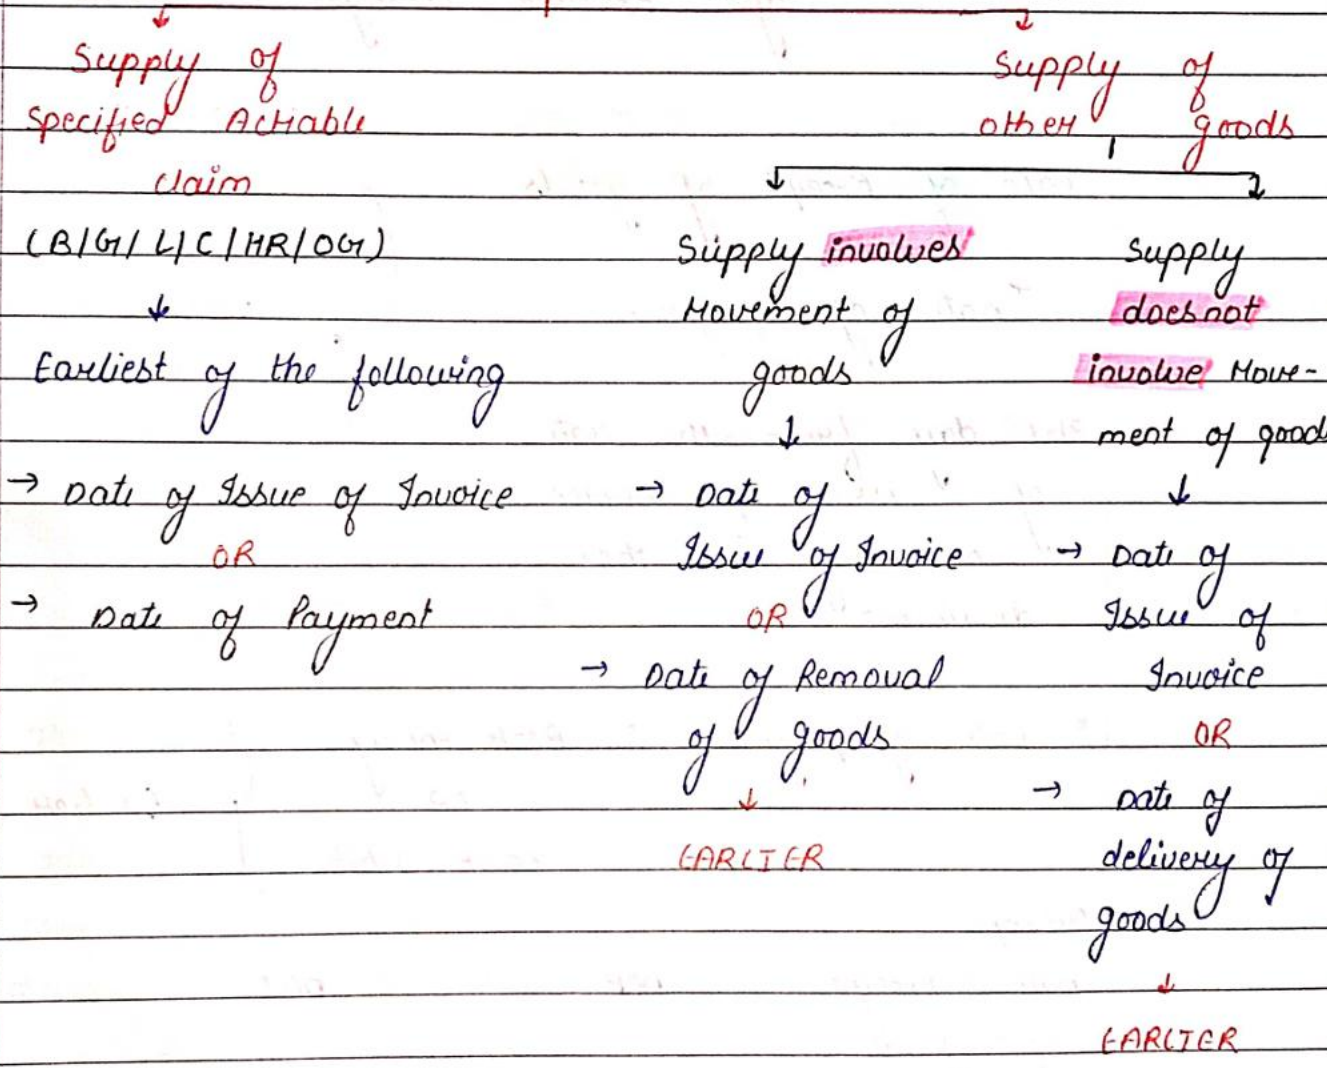 Supply of
Specified Actiable
claim
(B/G/L/C/HR/OG)
Earliest of the following
→ Date of Issue of Invoice
OR
→ Date of Payment
Supply of
other goods
Supply involves
Movement of
goods
→ Date of
Issue of Invoice
OR
→ Date of Removal
of goods
EARLIER
Supply
does not
involve Move-
ment of good
→ Date of
Issue of
Invoice
OR
→ Date of
delivery of
goods
EARLIER